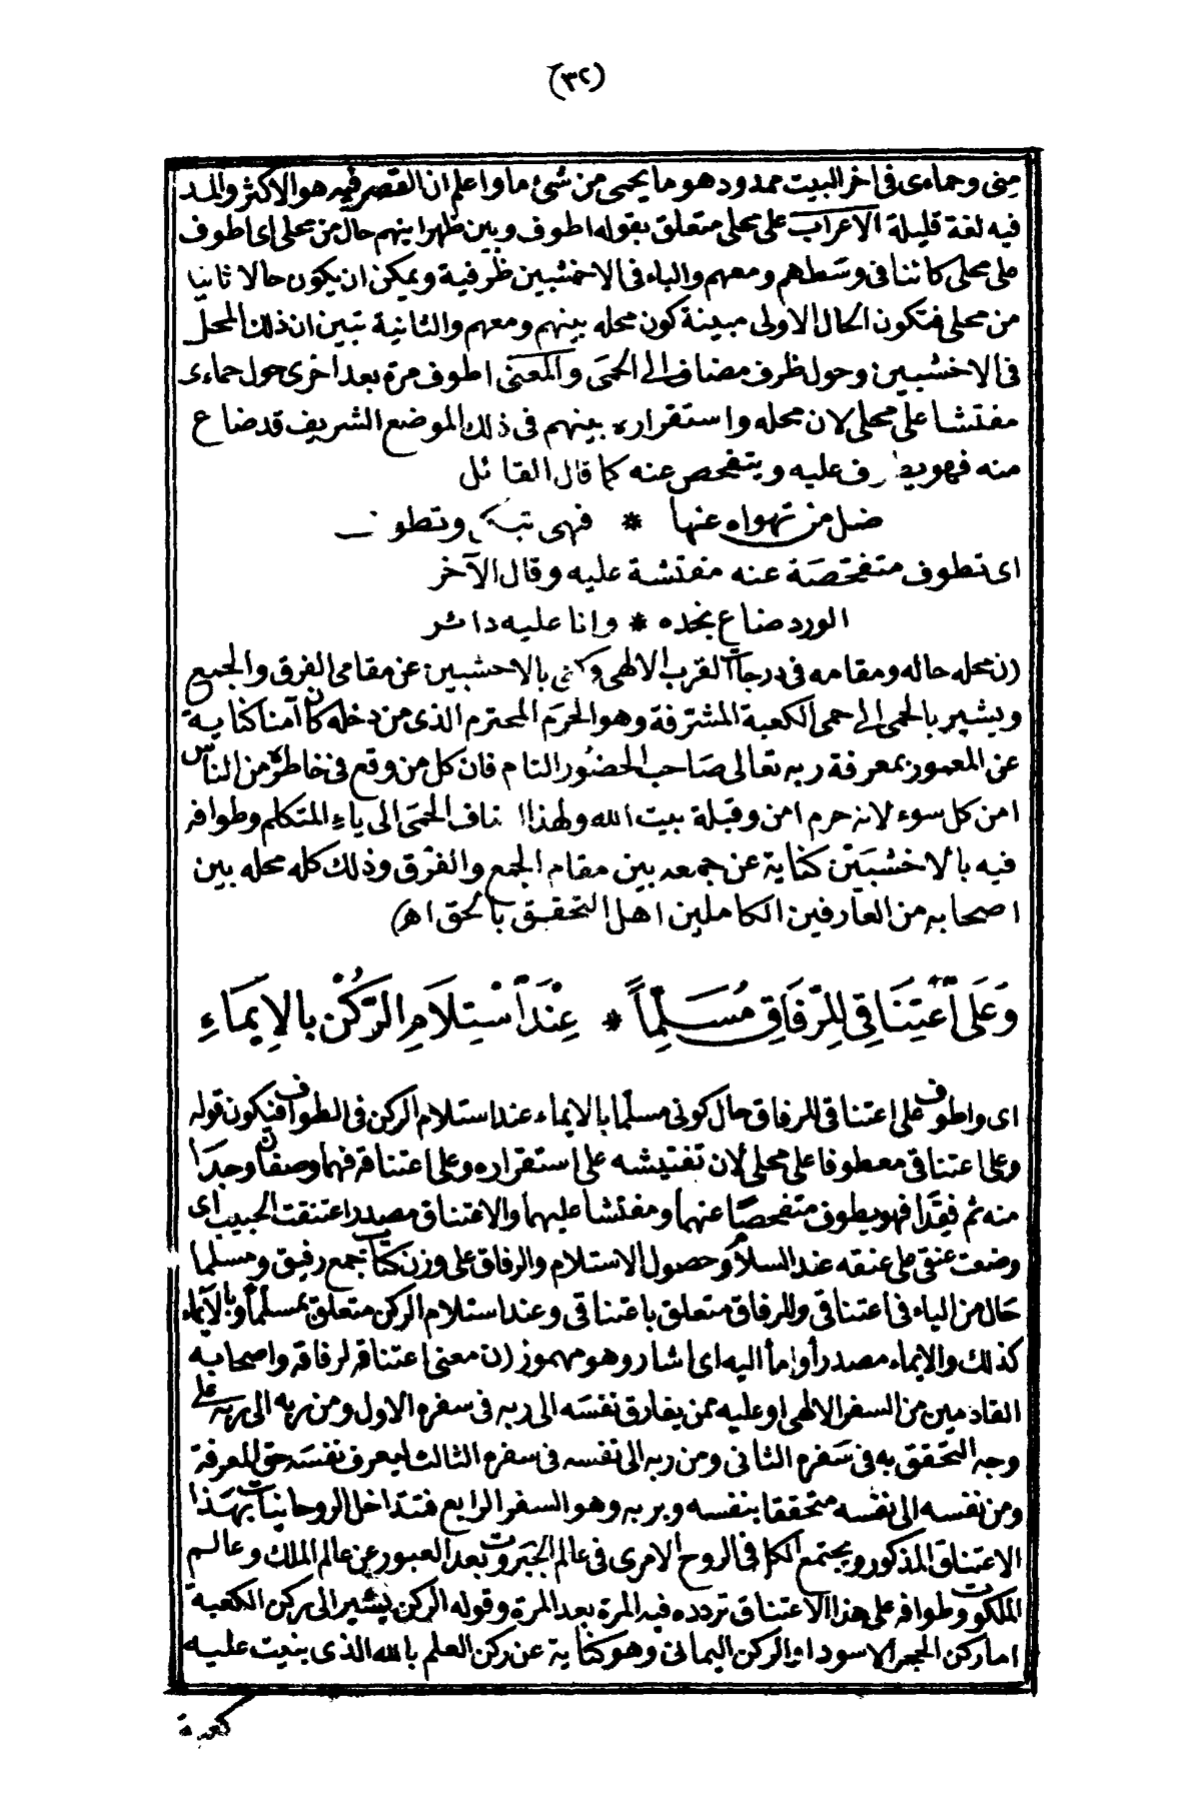 (٣٢)
منى وحماءى فى اخر البيت ممدود هو ما يحمى من شئ ما واعلم ان القصر فيه هو الاكثر والمد
فيه لغة قليلة الاعراب على محلى متعلق بقوله اطوف وبين ظهرا بينهم حال من محلى اى اطوف
على محلى كائنا فى وسطهم ومعهم والباء فى الاخشبين ظرفية ويمكن ان يكون حالا ثانيا
من محلى فتكون الحال الاولى مبينة كون محله بينهم ومعهم والثانية تبين ان ذلك المحل
فى الاخشبين وحول ظرف مضاف الى الحمى والمعنى اطوف مرة بعد اخرى حول حماءى
مفتشا على محلى لان محله واستقراره بينهم فى ذلك الموضع الشريف قد ضاع
منه فهو يطوف عليه ويتفحص عنه كما قال القائل
ضل من تهواه عنها * فهى تبكى وتطوف
اى تطوف متفحصة عنه مفتشة عليه وقال الآخر
الورد ضاع بخده * وانا عليه دائر
(ن محله حاله ومقامه فى درجات القرب الالهى وكنى بالاخشبين عن مقامى الفرق والجمع
ويشير بالحمى الى حمى الكعبة المشرفة وهو الحرم المحترم الذى من دخله كان آمنا كناية
عن المعمور بمعرفة ربه تعالى صاحب الحضور التام فان كل من وقع فى خاطره من الناس
امن كل سوء لانه حرم امن وقبلة بيت الله ولهذا اضاف الحمى الى ياء المتكلم وطوافه
فيه بالاخشبين كناية عن جمعه بين مقام الجمع والفرق وذلك كله محله بين
اصحابه من العارفين الكاملين اهل التحقيق بالحق اهـ)
وَعَلَى اعْتِنَاقِى لِلرِّفَاقِ مُسَلِّمًا * عِنْدَ اسْتِلَامِ الرُّكْنِ بِالإِيمَاءِ
اى واطوف على اعتناقى للرفاق حال كونى مسلما بالايماء عند استلام الركن فى الطواف فيكون قوله
وعلى اعتناقى معطوفا على محلى لان تفتيشه على استقراره وعلى اعتناقه فهما وصفان وجدا
منه ثم فقدا فهو يطوف متفحصا عنهما ومفتشا عليهما والاعتناق مصدر اعتنقت الحبيب اى
وضعت عنقى على عنقه عند السلام وحصول الاستلام والرفاق على وزن كتاب جمع رفيق ومسلما
حال من الياء فى اعتناقى وللرفاق متعلق باعتناقى وعند استلام الركن متعلق بمسلما وبالايماء
كذلك والايماء مصدر أومأ اليه اى اشار وهو مهموز (ن معنى اعتناقه لرفاقه واصحابه
القادمين من السفر الالهى او عليه ممن يفارق نفسه الى ربه فى سفره الاول ومن ربه الى ربه على
وجه التحقق به فى سفره الثانى ومن ربه الى نفسه فى سفره الثالث ليعرف نفسه حق المعرفة
ومن نفسه الى نفسه متحققا بنفسه وبربه وهو السفر الرابع فتتداخل الروحانيات بهذا
الاعتناق المذكور ويجتمع الكل فى الروح الامرى فى عالم الجبروت بعد العبور عن عالم الملك وعالم
الملكوت وطوافه على هذا الاعتناق تردده فيه المرة بعد المرة وقوله الركن يشير الى ركن الكعبة
اما ركن الحجر الاسود او الركن اليمانى وهو كناية عن ركن العلم بالله الذى بنيت عليه
كعبة